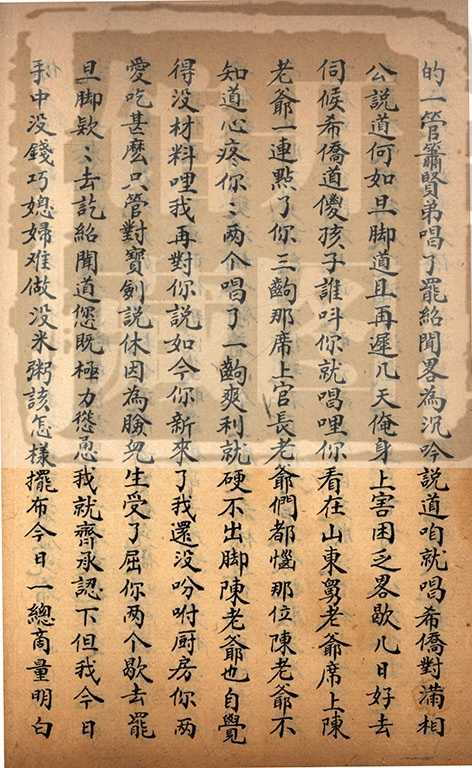 的一管簫賢弟唱了罷紹聞畧為沉吟說道咱就唱希僑對滿相
公說道何如旦脚道且再遲几天俺身上害困乏畧歇几日好去
伺候希僑道傻孩子誰呌你就唱哩你看在山東舅老爺席上陳
老爺一連點了你三齣那席上官長老爺們都惱那位陳老爺不
知道心疼你〻两个唱了一齣爽利就硬不出脚陳老爺也自覺
得没材料哩我再對你說如今你新來了我還没吩咐厨房你两
愛吃甚麼只管對寶劍說休因為腼兒生受了屈你两个歇去罷
旦脚欵〻去訖紹聞道您既極力慫恿我就齊承認下但我今日
手中没錢巧媳婦难做没米粥該怎樣擺布今日一總商量明白